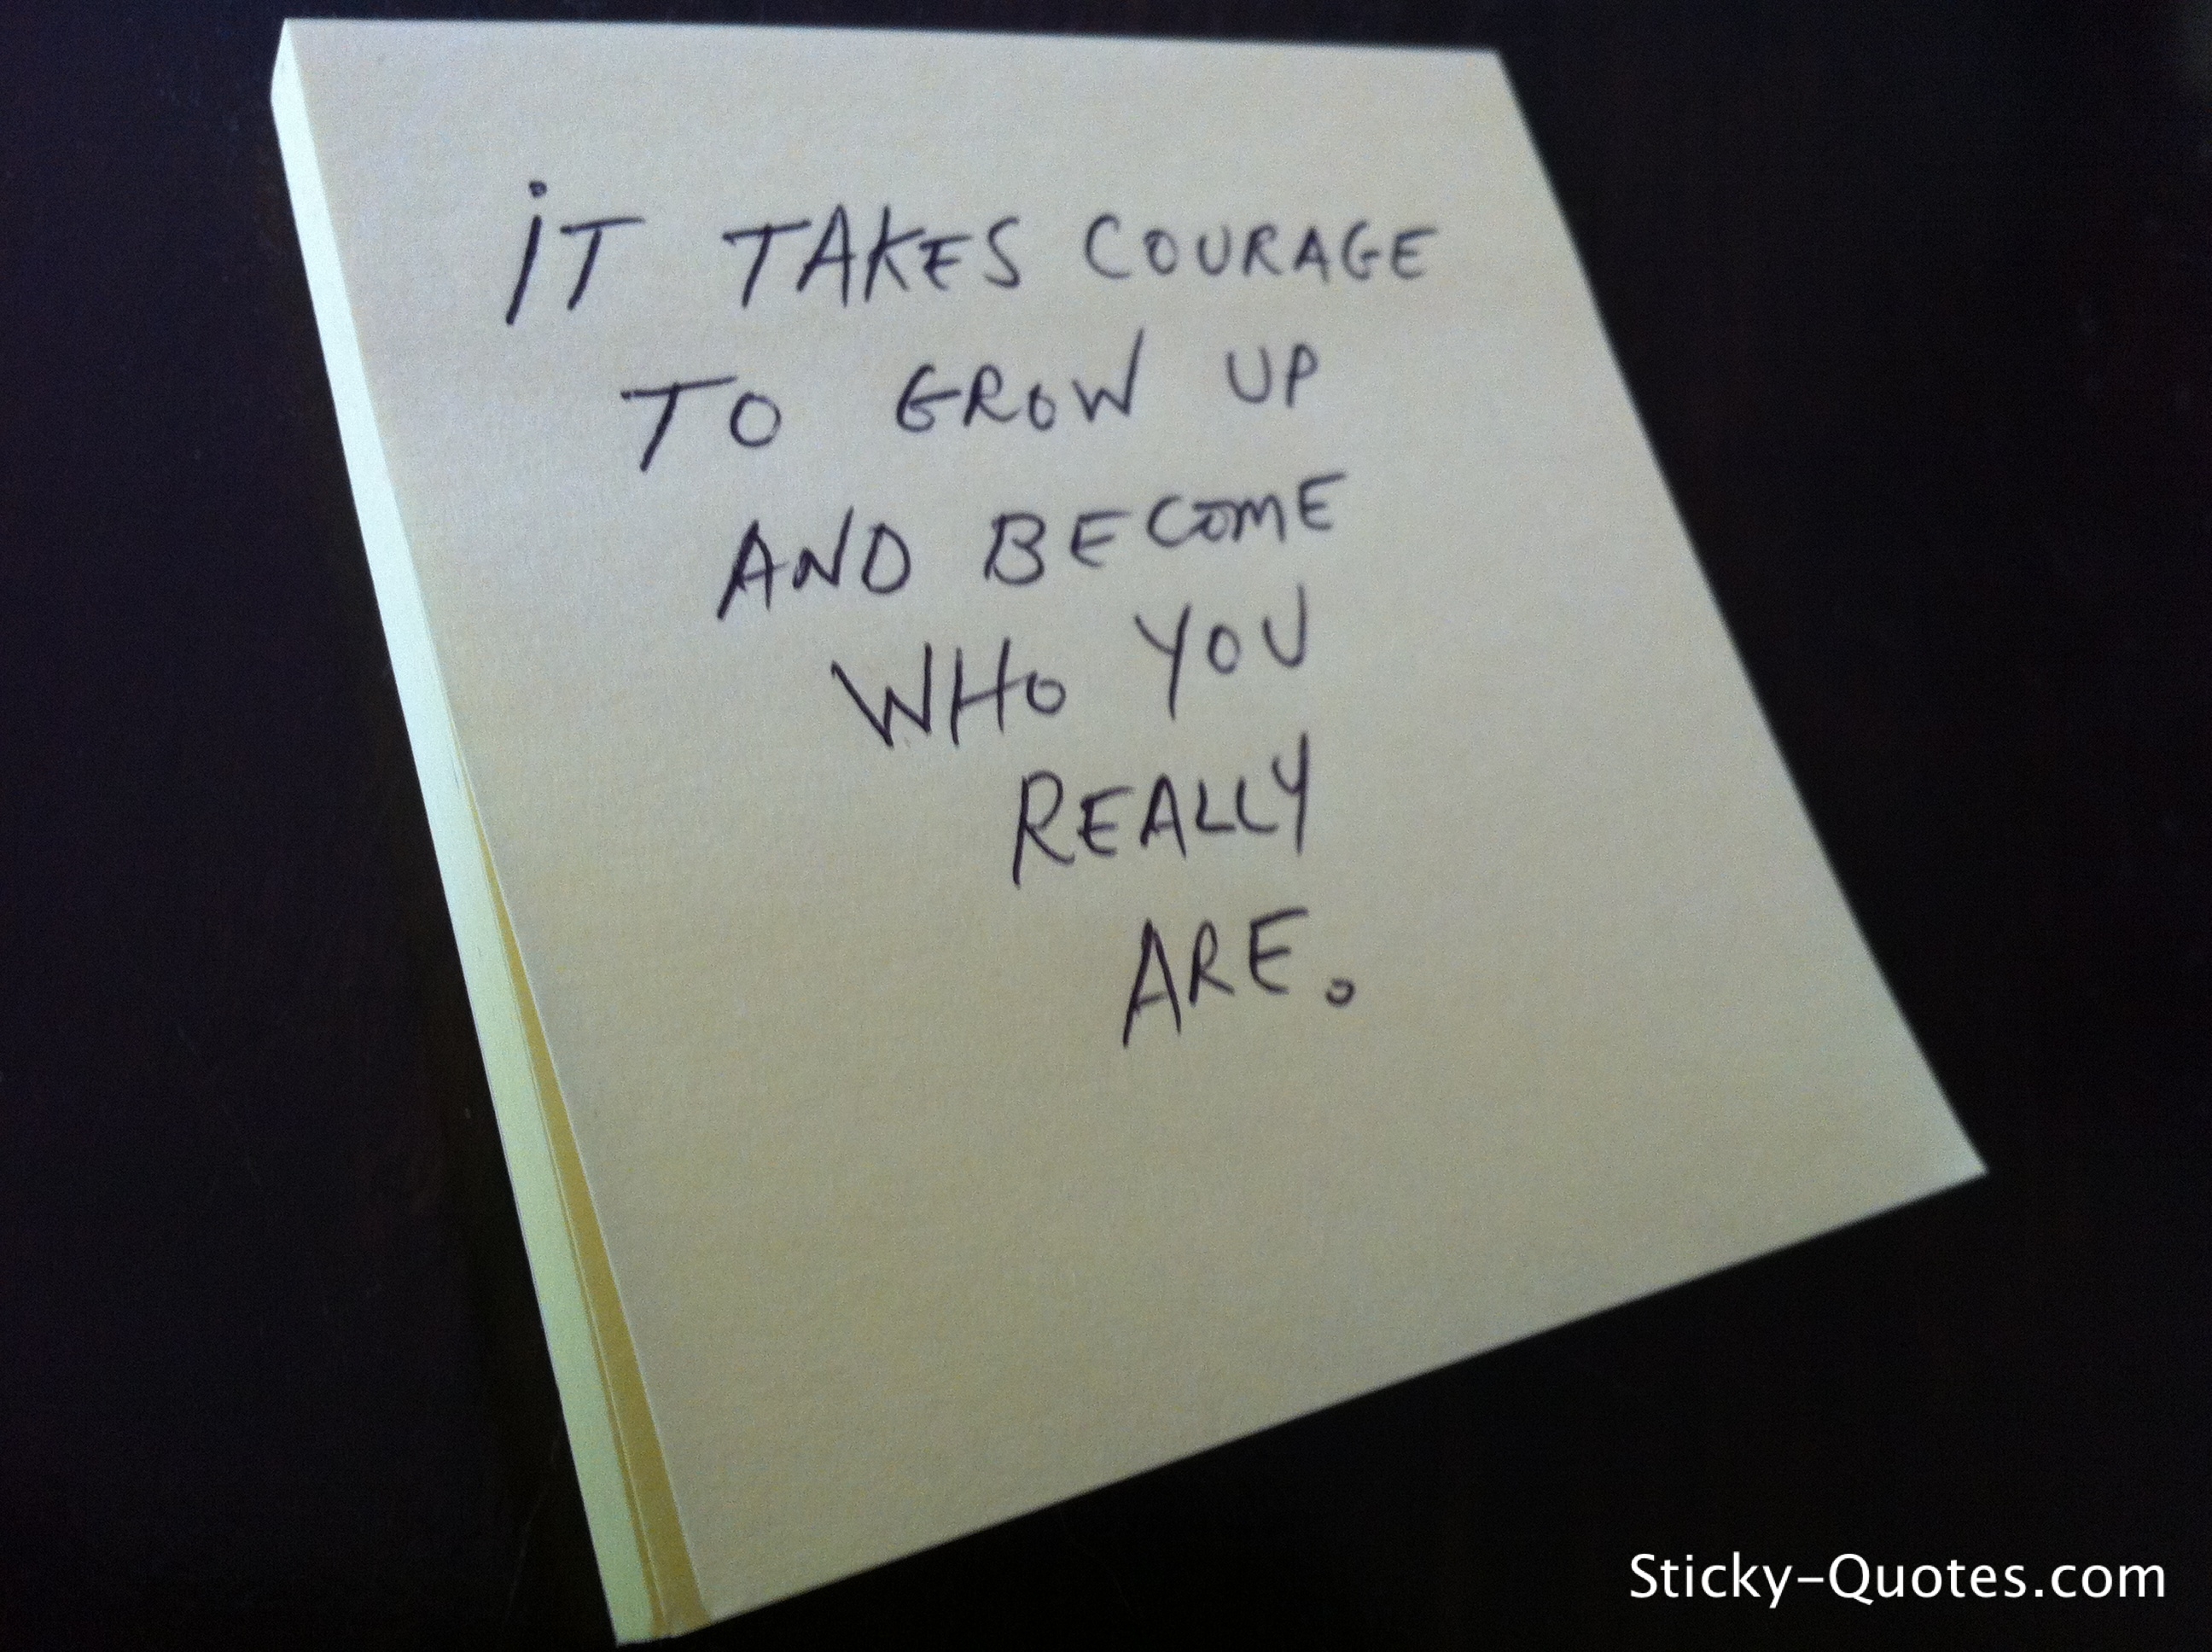 iT TAKES COURAGE
TO GROW UP
AND BECOME
WHO YOU
REALLY
ARE.
Sticky-Quotes.com